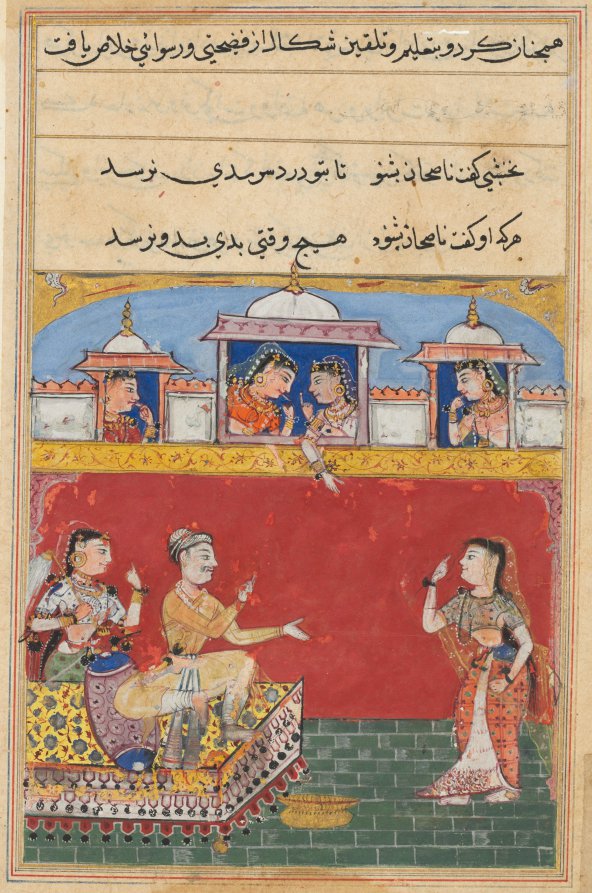 همچنان کرد و بتعلیم و تلقین شکال از فضحیتی و رسوائی خلاص یافت
نخشبی گفت ناصحان بشنو تا بتو درد سر بدی نرسد
هرکه او گفت ناصحان بشنود هیچ وقتی بدی بدو نرسد